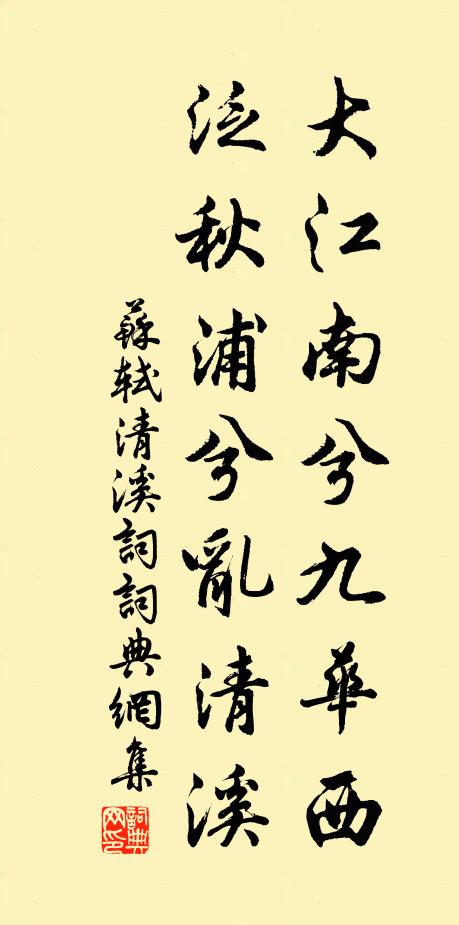 大江南兮九華西
泛秋浦兮亂清溪
蘇軾清溪詞詞典網集
詞典网印